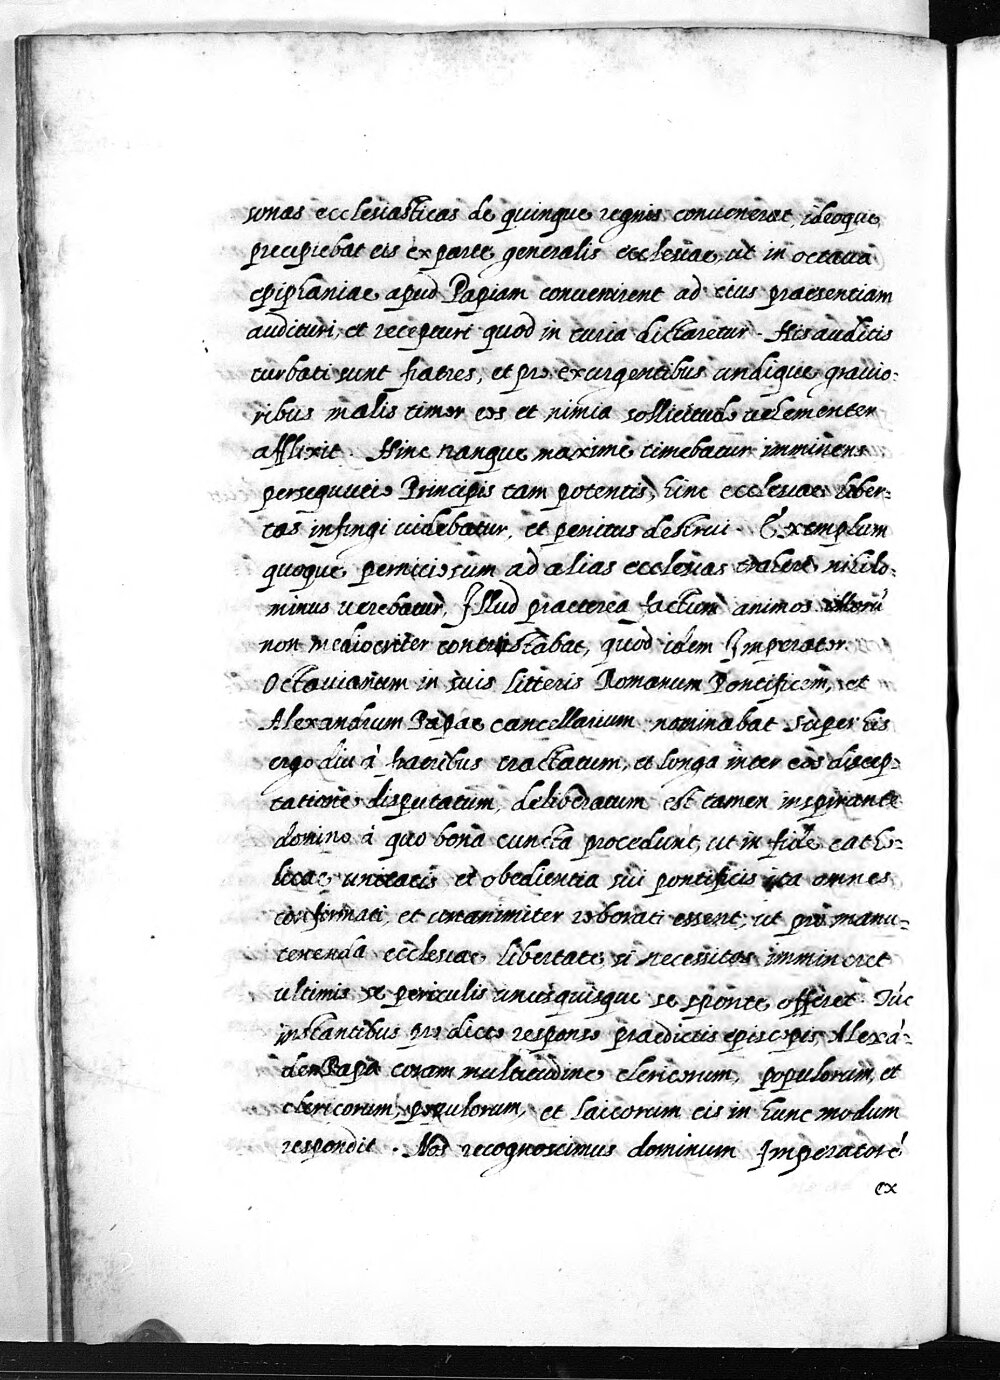 sonas ecclesiasticas de quinque regnis conuenerat, ideoque
precipiebat eis ex parte generalis ecclesiae, ut in octaua
epiphaniae apud Papiam conuenirent ad eius praesentiam
audituri, et recepturi quod in curia dictaretur. His auditis
turbati sunt fratres, et pro exurgentibus undique grauio=
ribus malis timor eos et nimia sollicitudo uehementer
afflixit. Hinc nanque maxime timebatur imminens
persequutio Principis tam potentis, hinc ecclesiae liber=
tas infingi uidebatur, et penitus destrui. Exemplum
quoque perniciosum ad alias ecclesias trahere nihilo=
minus uerebatur, Illud praeterea factum animos illorū
non mediocriter contristabat, quod idem Imperator
Octauianum in suis litteris Romanum Pontificem, et
Alexandrum Papae cancellarium nominabat. Super his
ergo diu à fratribus tractatum, et longa inter eos discep=
tatione disputatum, deliberatum est tamen inspirante
domino à quo bona cuncta procedunt, ut in fide catho=
licae unitatis et obedientia sui pontificis ita omnes
confirmati, et unanimiter roborati essent, ut pro manu=
tenenda ecclesiae libertate, si necessitas immineret
ultimis se periculis unusquisque se sponte offeret. Tūc
instantibus pro dicto responso praedictis episcopis, Alexā=
der Papa coram multitudine clericorum, populorum, et
clericorum, populorum, et laicorum eis in hunc modum
respondit. Nos recognoscimus dominum Imperatorē
ex